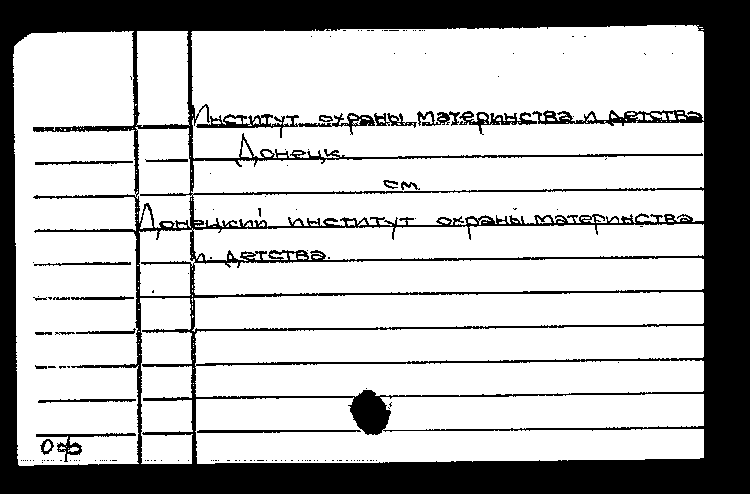 Институт охраны материнства и детства
Донецк.
см
Донецкий институт охраны материнства
и детства.
Оф